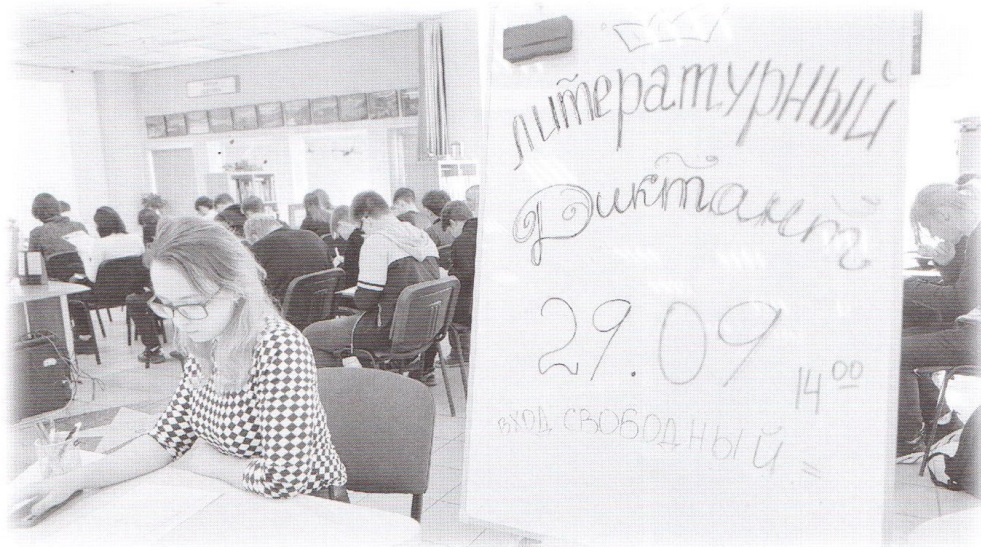 Литературный
Диктант
29.09
14 00
вход свободный =